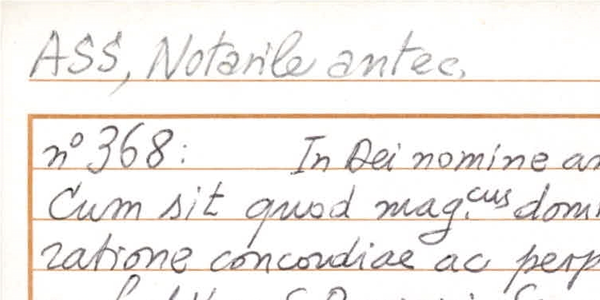 ASS, Notarile antec.
n° 368: In Dei nomine am
Cum sit quod mag.cus domi
ratione concordiae ac perp